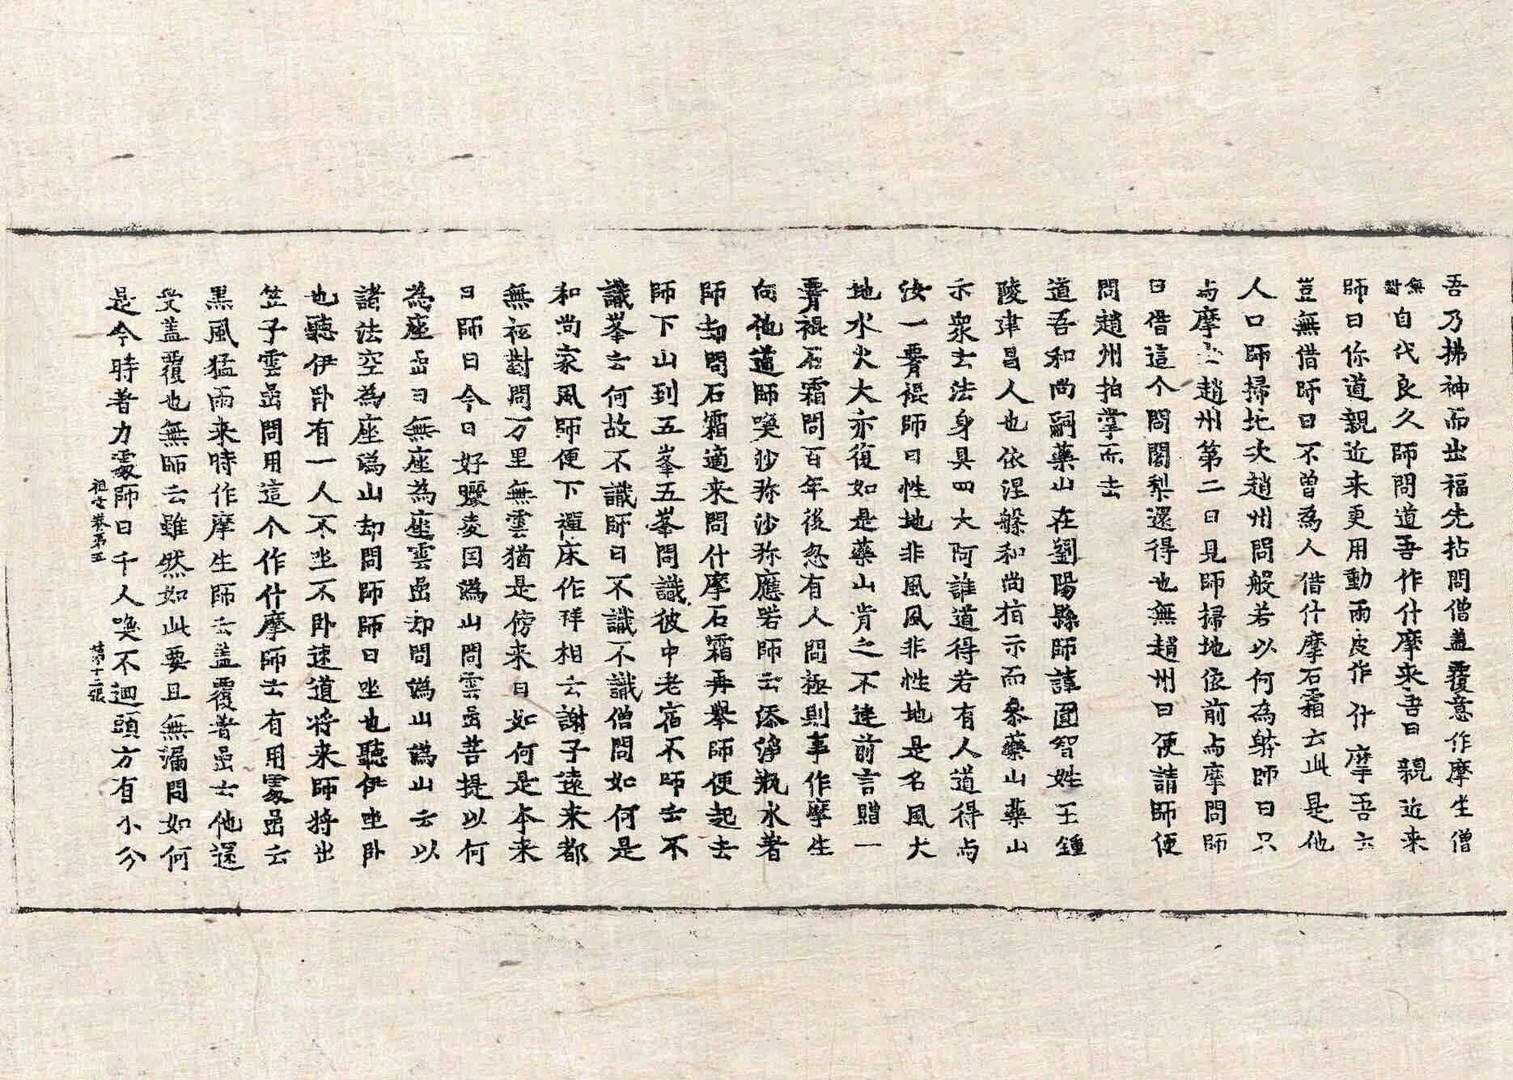 吾乃拂袖而出福先拈問僧蓋覆意作摩生僧
無對自代良久師問道吾作什摩來吾曰親近来
師曰你道親近来更用動兩皮作什摩吾云
豈無借師曰不曾爲人借什摩石霜云此是他
人口師掃地次趙州問般若以何為躰師曰只
与摩去趙州第二日見師掃地依前与摩問師
曰借這个問闍梨還得也無趙州曰便請師便
問趙州拍掌而去
道吾和尚嗣藥山在劉陽縣師諱圓智姓王鍾
陵建昌人也依涅槃和尚指示而叅藥山藥山
示衆云法身具四大阿誰道得若有人道得与
汝一腰裩師曰性地非風風非性地是名風大
地水火大亦復如是藥山肯之不違前言贈一
腰裩石霜問百年後忽有人問極則事作摩生
向他道師喚沙弥沙弥應喏師云添淨瓶水著
師却問石霜適来問什摩石霜再舉師便起去
師下山到五峯五峯問識彼中老宿不師云不
識峯云何故不識師曰不識不識僧問如何是
和尚家風師便下禪床作拜相云謝子遠来都
無祗對問万里無雲猶是傍来日如何是本来
日師曰今日好曬麦因潙山問雲嵒菩提以何
為座嵒曰無座為座雲嵒却問潙山潙山云以
諸法空為座潙山却問師師曰坐也聽伊坐卧
也聽伊卧有一人不坐不卧速道将来師将出
笠子雲嵒問用這个作什摩師云有用處嵒云
黒風猛雨来時作摩生師云盖覆著嵒云他還
受盖覆也無師云雖然如此要且無漏問如何
是今時著力處師曰千人喚不迴頭方有小分
祖堂卷第五　第十二張